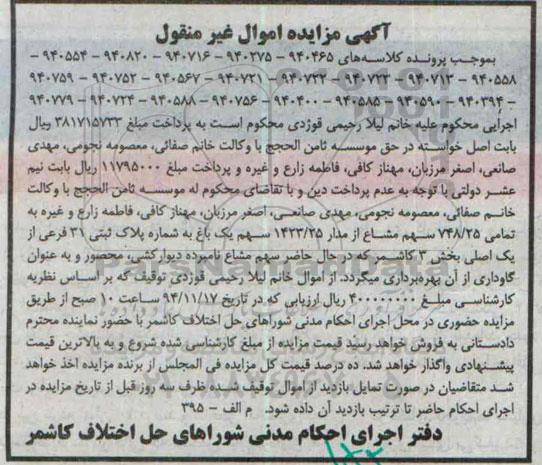 آگهی مزایده اموال غیر منقول
بموجب پرونده کلاسه‌های ۹۴۰۴۶۵ - ۹۴۰۲۷۵ - ۹۴۰۷۱۶ - ۹۴۰۸۲۰ - ۹۴۰۵۵۴ -
۹۴۰۵۵۸ - ۹۴۰۷۱۳ - ۹۴۰۷۲۲ - ۹۴۰۷۳۲ - ۹۴۰۷۲۱ - ۹۴۰۵۶۷ - ۹۴۰۷۵۲ - ۹۴۰۷۵۹
- ۹۴۰۳۹۴ - ۹۴۰۵۹۰ - ۹۴۰۵۸۵ - ۹۴۰۴۰۰ - ۹۴۰۷۵۶ - ۹۴۰۵۸۸ - ۹۴۰۷۲۴ - ۹۴۰۷۷۹
اجرایی محکوم علیه خانم لیلا رحیمی قوژدی محکوم است به پرداخت مبلغ ۳۸۱۷۱۵۷۳۳ ریال
بابت اصل خواسته در حق موسسه ثامن الحجج با وکالت خانم صفائی، معصومه نجومی، مهدی
صانعی، اصغر مرزبان، مهناز کافی، فاطمه زارع و غیره و پرداخت مبلغ ۱۱۷۹۵۰۰۰ ریال بابت نیم
عشر دولتی با توجه به عدم پرداخت دین و با تقاضای محکوم له موسسه ثامن الحجج با وکالت
خانم صفائی، معصومه نجومی، مهدی صانعی، اصغر مرزبان، مهناز کافی، فاطمه زارع و غیره به
تمامی ۷۴۸/۲۵ سهم مشاع از مدار ۱۴۳۳/۲۵ سهم یک باغ به شماره پلاک ثبتی ۳۱ فرعی از
یک اصلی بخش ۳ کاشمر که در حال حاضر سهم مشاع نامبرده دیوارکشی، محصور و به عنوان
گاوداری از آن بهره‌برداری میگردد. از اموال خانم لیلا رحیمی قوژدی توقیف که بر اساس نظریه
کارشناسی مبلغ ۴۰۰۰۰۰۰۰۰ ریال ارزیابی که در تاریخ ۹۴/۱۱/۱۷ ساعت ۱۰ صبح از طریق
مزایده حضوری در محل اجرای احکام مدنی شوراهای حل اختلاف کاشمر با حضور نماینده محترم
دادستانی به فروش خواهد رسید قیمت مزایده از مبلغ کارشناسی شده شروع و به بالاترین قیمت
پیشنهادی واگذار خواهد شد. ده درصد قیمت کل مزایده فی المجلس از برنده مزایده اخذ خواهد
شد متقاضیان در صورت تمایل بازدید از اموال توقیف شده ظرف سه روز قبل از تاریخ مزایده در
اجرای احکام حاضر تا ترتیب بازدید آن داده شود. م الف - ۳۹۵
دفتر اجرای احکام مدنی شوراهای حل اختلاف کاشمر